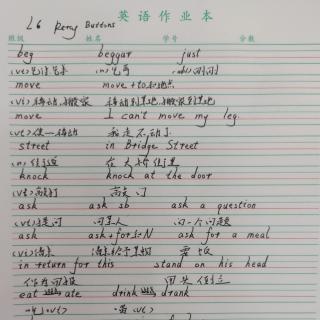 英语作业本
L6 Percy Buttons
班级 姓名 学号 分数
beg beggar just
(vt)乞讨 (n)乞丐
move move+to+地点
(vi)移动,搬家 移动到某地,搬家到某地
move I can't move my leg.
(vt)使…移动
street in Bridge Street
(n)街道 在大桥街
knock knock at the door
(vi)敲打 敲门
ask ask sb ask a question
(vt)提问 问某人 问一个问题
ask ask+for+N ask for a meal
in return for this stand on his head
eat ate drink drank